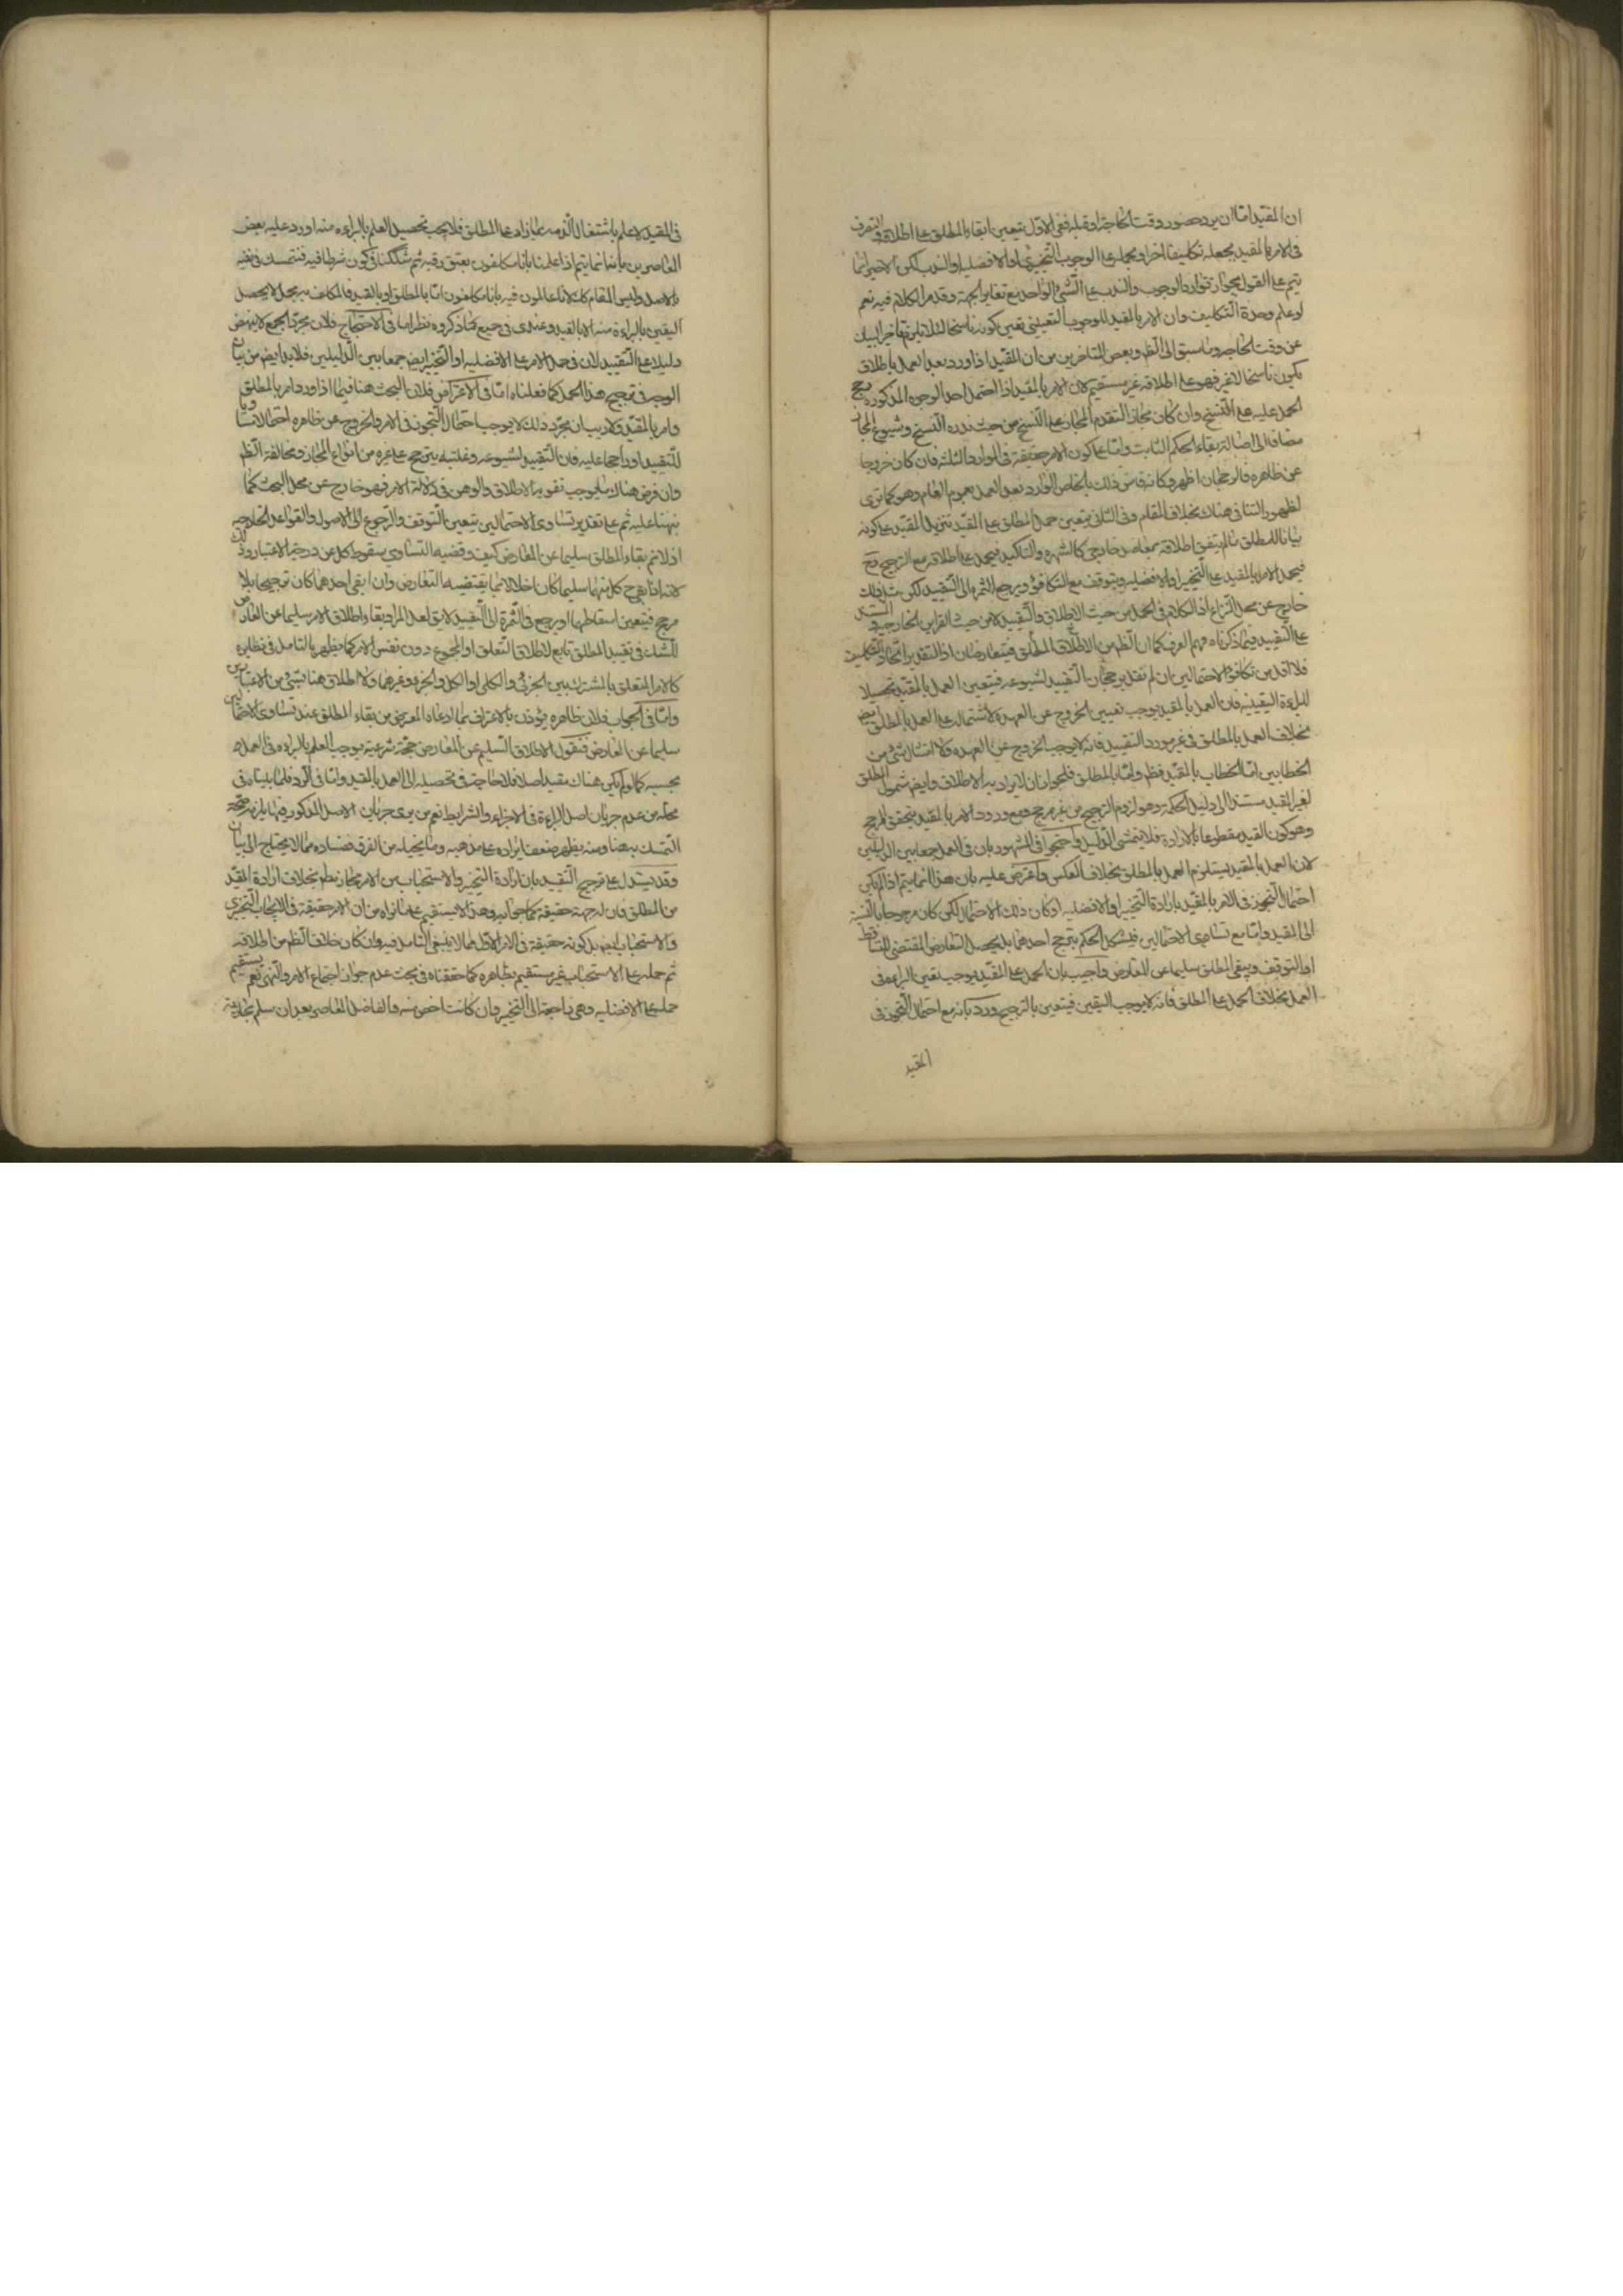 ان المقيد اما ان يرد حضور وقت الحاجة او قبله ففى الاول يتعين ابقاء المطلق على اطلاقه والتصرف
فى الامر بالمقيد بجعله تكليفا اخر او بحمله على الوجوب التخييرى او الافضلية او الندب لكن الاخير انما
يتم على القول بجواز توارد الوجوب والندب على الشئ الواحد مع تغاير الجهة وقد مر الكلام فيه نعم
لو علم وحدة التكليف وان الامر بالمقيد للوجوب التعيينى تعين كونه ناسخا لئلا يلزم تاخر البيان
عن وقت الحاجة وما سبق الى الظم وبعض المتاخرين من ان المقيد اذا ورد بعد العمل باطلاق
يكون ناسخا لا غير فهو على اطلاقه غير مستقيم لان الامر بالمقيد اذا احتمل احد الوجوه المذكورة
الحمل عليه على النسخ وان كان مجازا لتقدم المجاز على النسخ من حيث ندرة النسخ وشيوع المجاز
مضافا الى اصالة بقاء الحكم الثابت واما على كون الامر حقيقة فى الموارد الثلثة فان كان خروجا
عن ظاهره فالرجحان اظهر وكانه قاس ذلك بالخاص الوارد بعد العمل بعموم العام وهو كما ترى
لظهور التنافى هناك بخلاف المقام وفى الثانى يتعين حمل المطلق على المقيد بتنزيل المقيد على كونه
بيانا للمطلق ما لم يتقو اطلاقه بمعاضد خارجى كالشهرة والتاكيد فيحمل على اطلاقه مع الترجيح وح
فيحمل الامر بالمقيد على التخيير او الافضلية ويتوقف مع التكافؤ ويرجع الثمرة الى التقييد لكن مثل ذلك
خارج عن محل النزاع اذ الكلام فى الحمل من حيث الاطلاق والتقييد لا من حيث القراين الخارجية والمستند
على التقييد فيما ذكرناه فهم العرف كما ان الظم من الاطلاق المطلق فيتعارضان اذ التقدير اتحاد التكليف
فلا اقل من تكافؤ الاحتمالين ان لم نقل برجحان التقييد لشيوعه فيتعين العمل بالمقيد تحصيلا
للبراءة اليقينية فان العمل بالمقيد يوجب تعيين الخروج عن العهدة لاشتماله على العمل بالمطلق ايضا
بخلاف العمل بالمطلق فى غير مورد التقييد فانه لا يوجب الخروج عن العهدة ولا امتثال شئ من
الخطابين اما الخطاب بالمقيد فظم واما بالمطلق فلجواز ان لا يراد به الاطلاق وايضا شمول المطلق
لغير المقيد مستند الى دليل الحكمة وهو لزوم الترجيح من غير مرجح ومع ورود الامر بالمقيد يتحقق المرجح
وهو كون القيد مقطوعا بالارادة فلا يتمشى الدليل واحتجوا فى المشهور بان فى العمل جمعا بين الدليلين
لان العمل بالمقيد يستلزم العمل بالمطلق بخلاف العكس واعترض عليه بان هذا انما يتم اذا لم يكن
احتمال التجوز فى الامر بالمقيد بارادة التخيير او الافضلية او كان ذلك الاحتمال لكن كان مرجوحا بالنسبة
الى المقيد واما مع تساوى الاحتمالين فيشكل الحكم بترجيح احدهما بل يحصل التعارض المقتضى للتساقط
او التوقف ويبقى المطلق سليما عن المعارض واجيب بان الحمل على المقيد يوجب تعين البراءة فى
العمل بخلاف الحمل على المطلق فانه لا يوجب اليقين فيتعين بالترجيح ورد بانه مع احتمال التجوز فى
المقيد
فى المقيد لا علم باشتغال الذمة بما زاد على المطلق فلا يجب تحصيل العلم بالبراءة منه اورد عليه بعض
المعاصرين بانه انما يتم اذا علمنا بانا مكلفون بعتق رقبة ثم شككنا فى كون شرطا فيه فنتمسك فى نفيه
بالاصل وليس المقام كك لانا عالمون فيه بانا مكلفون اما بالمطلق او بالمقيد فالمكلف به مجمل لا يحصل
اليقين بالبراءة منه الا بالقيد وعندى فى جميع ما ذكروه نظر اما فى الاحتجاج فلان مجرد الجمع لا ينهض
دليلا على التقييد لان فى حمل الامر على الافضلية او التخيير ايضا جمعا بين الدليلين فلابد ايضا من بيان
الوجه فى ترجيح هذا الحمل كما فعلناه اما فى الاعتراض فلان البحث هنا فيما اذا ورد امر بالمطلق
وامر بالمقيد ولا ريب ان مجرد ذلك لا يوجب احتمال التجوز فى الامر والخروج عن ظاهره احتمالا مساويا
للتقييد او راجحا عليه فان التقييد لشيوعه وغلبته يترجح على غيره من انواع المجاز ومخالفة الظم
وان فرض هناك ما يوجب تقوية الاطلاق والوهن فى دلالة الامر فهو خارج عن محل البحث كما
نبهنا عليه ثم على تقدير تساوى الاحتمالين يتعين التوقف والرجوع الى الاصول والقواعد الخارجية
اذ لا نم بقاء المطلق سليما عن المعارض كيف وقضية التساوى سقوط كل عن درجة الاعتبار وذلك
لانه اذا بقى كل منهما سليما كان اخلالا بما يقتضيه التعارض وان ابقى احدهما كان ترجيحا بلا
مرجح فيتعين اسقاطهما ويرجع فى الثمرة الى التقييد لا يق لعل المراد بقاء اطلاق الامر سليما عن المعارض
للشك فى تقييد المطلق تابع لاطلاق التعلق او المجموع دون نفس الامر كما يظهر بالتامل فى نظايره
كالامر المتعلق بالمشترك بين الجزئى والكلى او الكل والجزء وغيرهما ولا اطلاق هنا بشئ من الاعتبارين
واما فى الجواب فلان ظاهره يؤذن بالاعتراف بما ادعاه المعترض من بقاء المطلق عند تساوى الاحتمالين
سليما عن المعارض فنقول الاطلاق السليم عن المعارض حجة شرعية يوجب العلم بالبراءة فى العمل
بحسبه كما لو لم يكن هناك مقيد اصلا فلا حاجة فى تحصيله الى العمل بالمقيد واما فى الرد فلما بيناه فى
محله من عدم جريان اصل البراءة فى الاجزاء والشرايط نعم من يرى جريان الاصل المذكور فيها يلزمه صحة
التمسك به هنا ومنه يظهر ضعف ايراده على مذهبه وما يتخيله من الفرق ففساده مما لا يحتاج الى بيان
وقد يستدل على ترجيح التقييد بان ارادة التخيير والاستحباب من الامر مجاز بخلاف ارادة المقيد
من المطلق فان له جهة حقيقة كما مر وهذا لا يستقيم على ما نراه من ان الامر حقيقة فى الايجاب التخييرى
والاستحباب ايضا بل كونه حقيقة فى الامر الاول مما لا ينبغى التامل فيه وان كان خلاف الظم من اطلاقه
ثم حمله على الاستحباب غير مستقيم بظاهره كما حققناه فى مبحث عدم جواز اجتماع الامر والنهى نعم يستقيم
حمله على الافضلية وهى راجعة الى التخيير وان كانت اخص منه والفاضل المعاصر بعد ان سلم مجازية